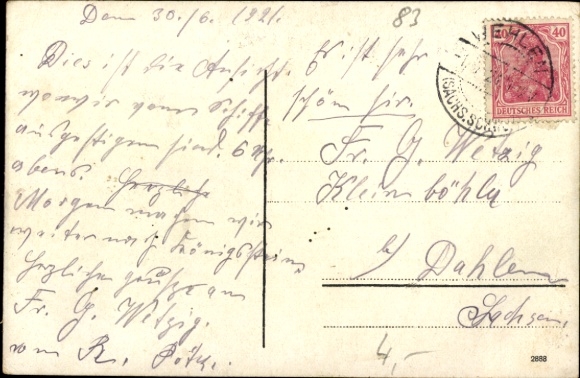 Den 30./6. 1921.
83
Dies ist die Ansicht. Es ist sehr
wo wir vom Schiffe schön hir.
ausgestigen sind. 6 Uhr.
abens. Herzliche
Morgen machen wir
weiter nach Königstein.
Herzliche grüße an
Fr. G. Wetzig.
von R.
WEHLEN
(SÄCHS. SCHWEIZ)
40
DEUTSCHES REICH
Fr. G. Wetzig
Kleinböhla
b/ Dahlen
Sachsen.
4,-
2888